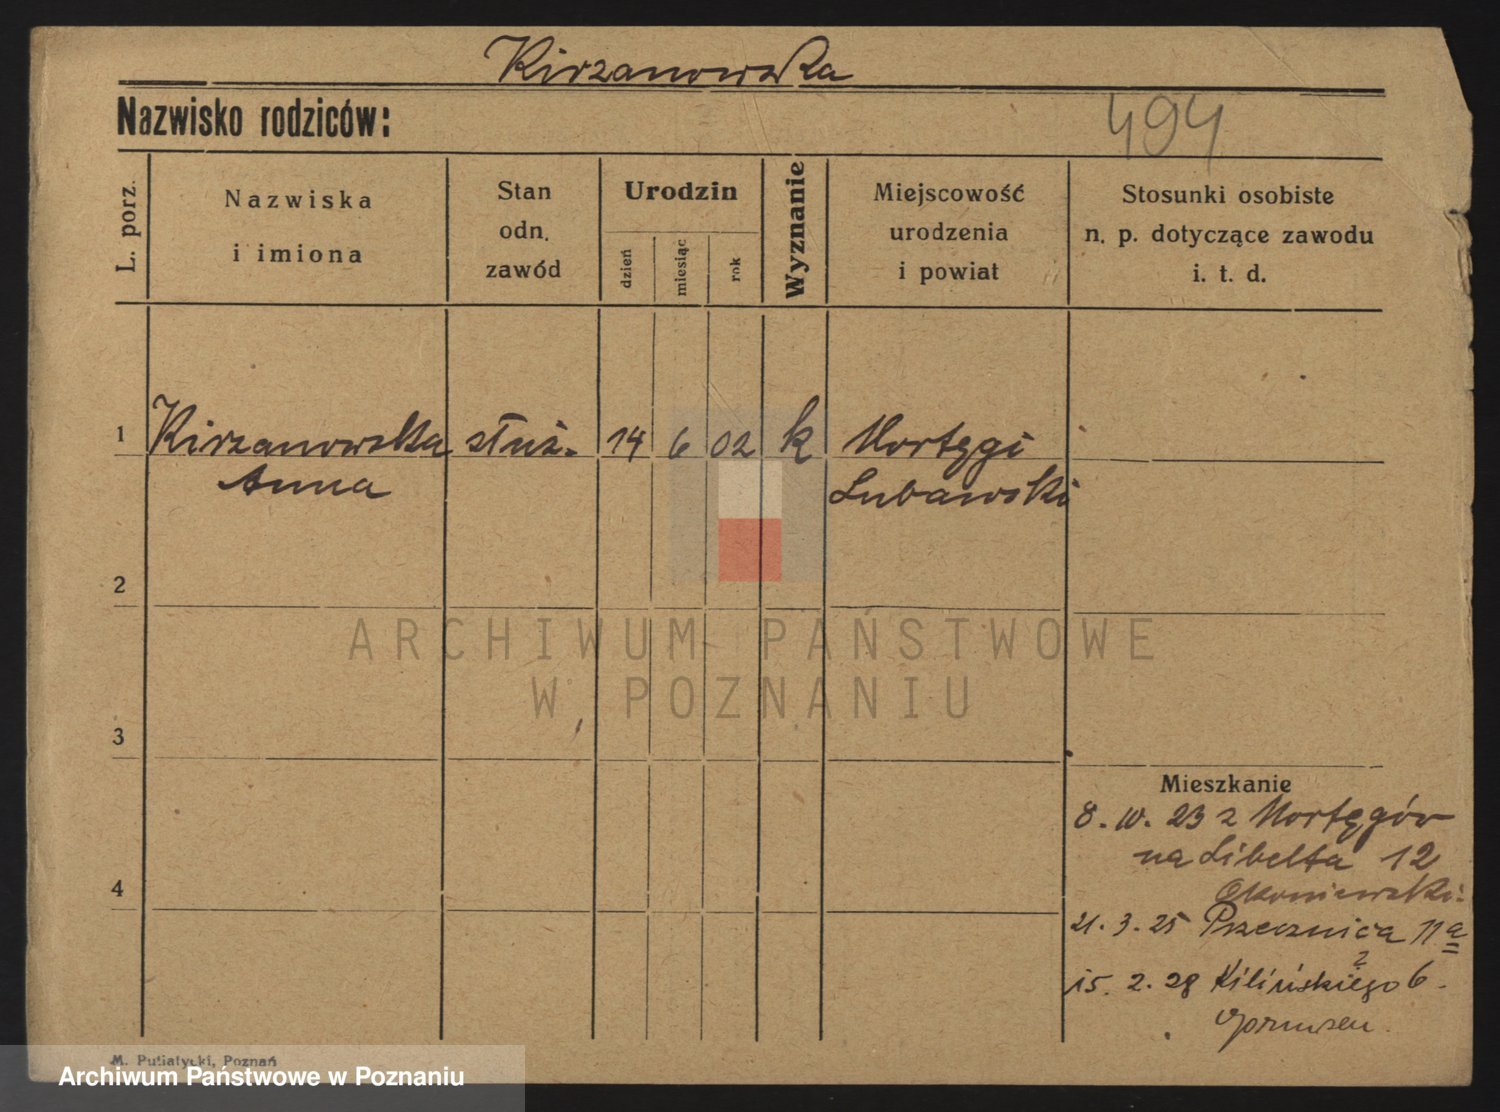 Kirzanowska
Nazwisko rodziców:
494
L. porz.
Nazwiska
i imiona
Stan
odn.
zawód
Urodzin
dzień
miesiąc
rok
Wyznanie
Miejscowość
urodzenia
i powiat
Stosunki osobiste
n. p. dotyczące zawodu
i. t. d.
1 Kirzanowska służ. 14 6 02 k Mortęgi
Anna Lubawski
2
3
4
ARCHIWUM PAŃSTWOWE
W POZNANIU
Mieszkanie
8. IV. 23 z Mortęgów
na Libelta 12
Okoniewski.
21. 3. 25 Przecznica 11a
15. 2. 28 Kilińskiego 6.
M. Putiatycki, Poznań
Archiwum Państwowe w Poznaniu